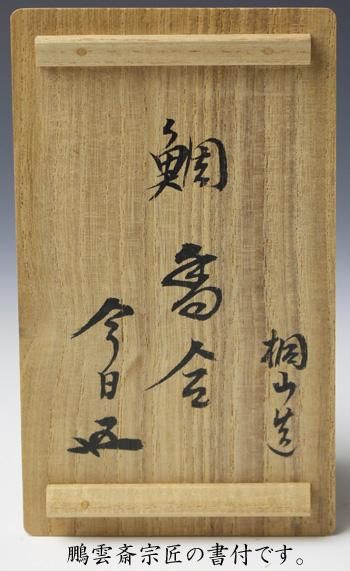 鯛
香合
桐山造
今日庵
鵬雲斎宗匠の書付です。